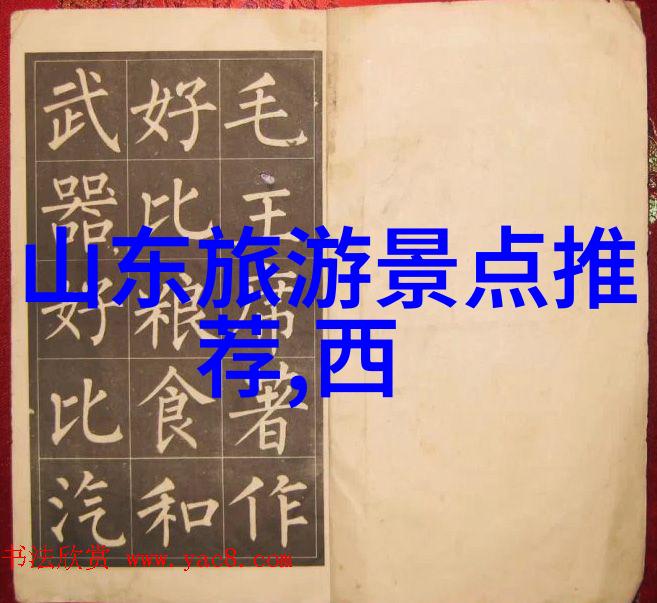 毛主席著作
好比粮食和
武器,好比汽
山东旅游景点推
荐,西
书法欣赏 www.yac8.com